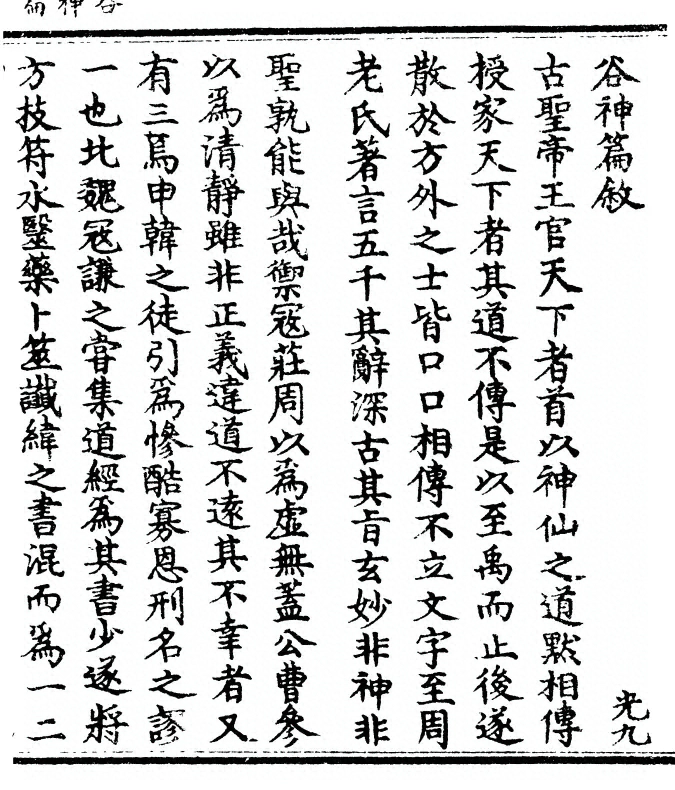 谷神篇敘
光九
古聖帝王官天下者首以神仙之道默相傳
授家天下者其道不傳是以至禹而止後遂
散於方外之士皆口口相傳不立文字至周
老氏著言五千其辭深古其旨玄妙非神非
聖孰能與哉禦寇莊周以為虛無蓋公曹參
以為清靜雖非正義違道不遠其不幸者又
有三焉申韓之徒引為慘酷寡恩刑名之謬
一也北魏冦謙之嘗集道經為其書少遂將
方技符水醫藥卜筮讖緯之書混而為一二